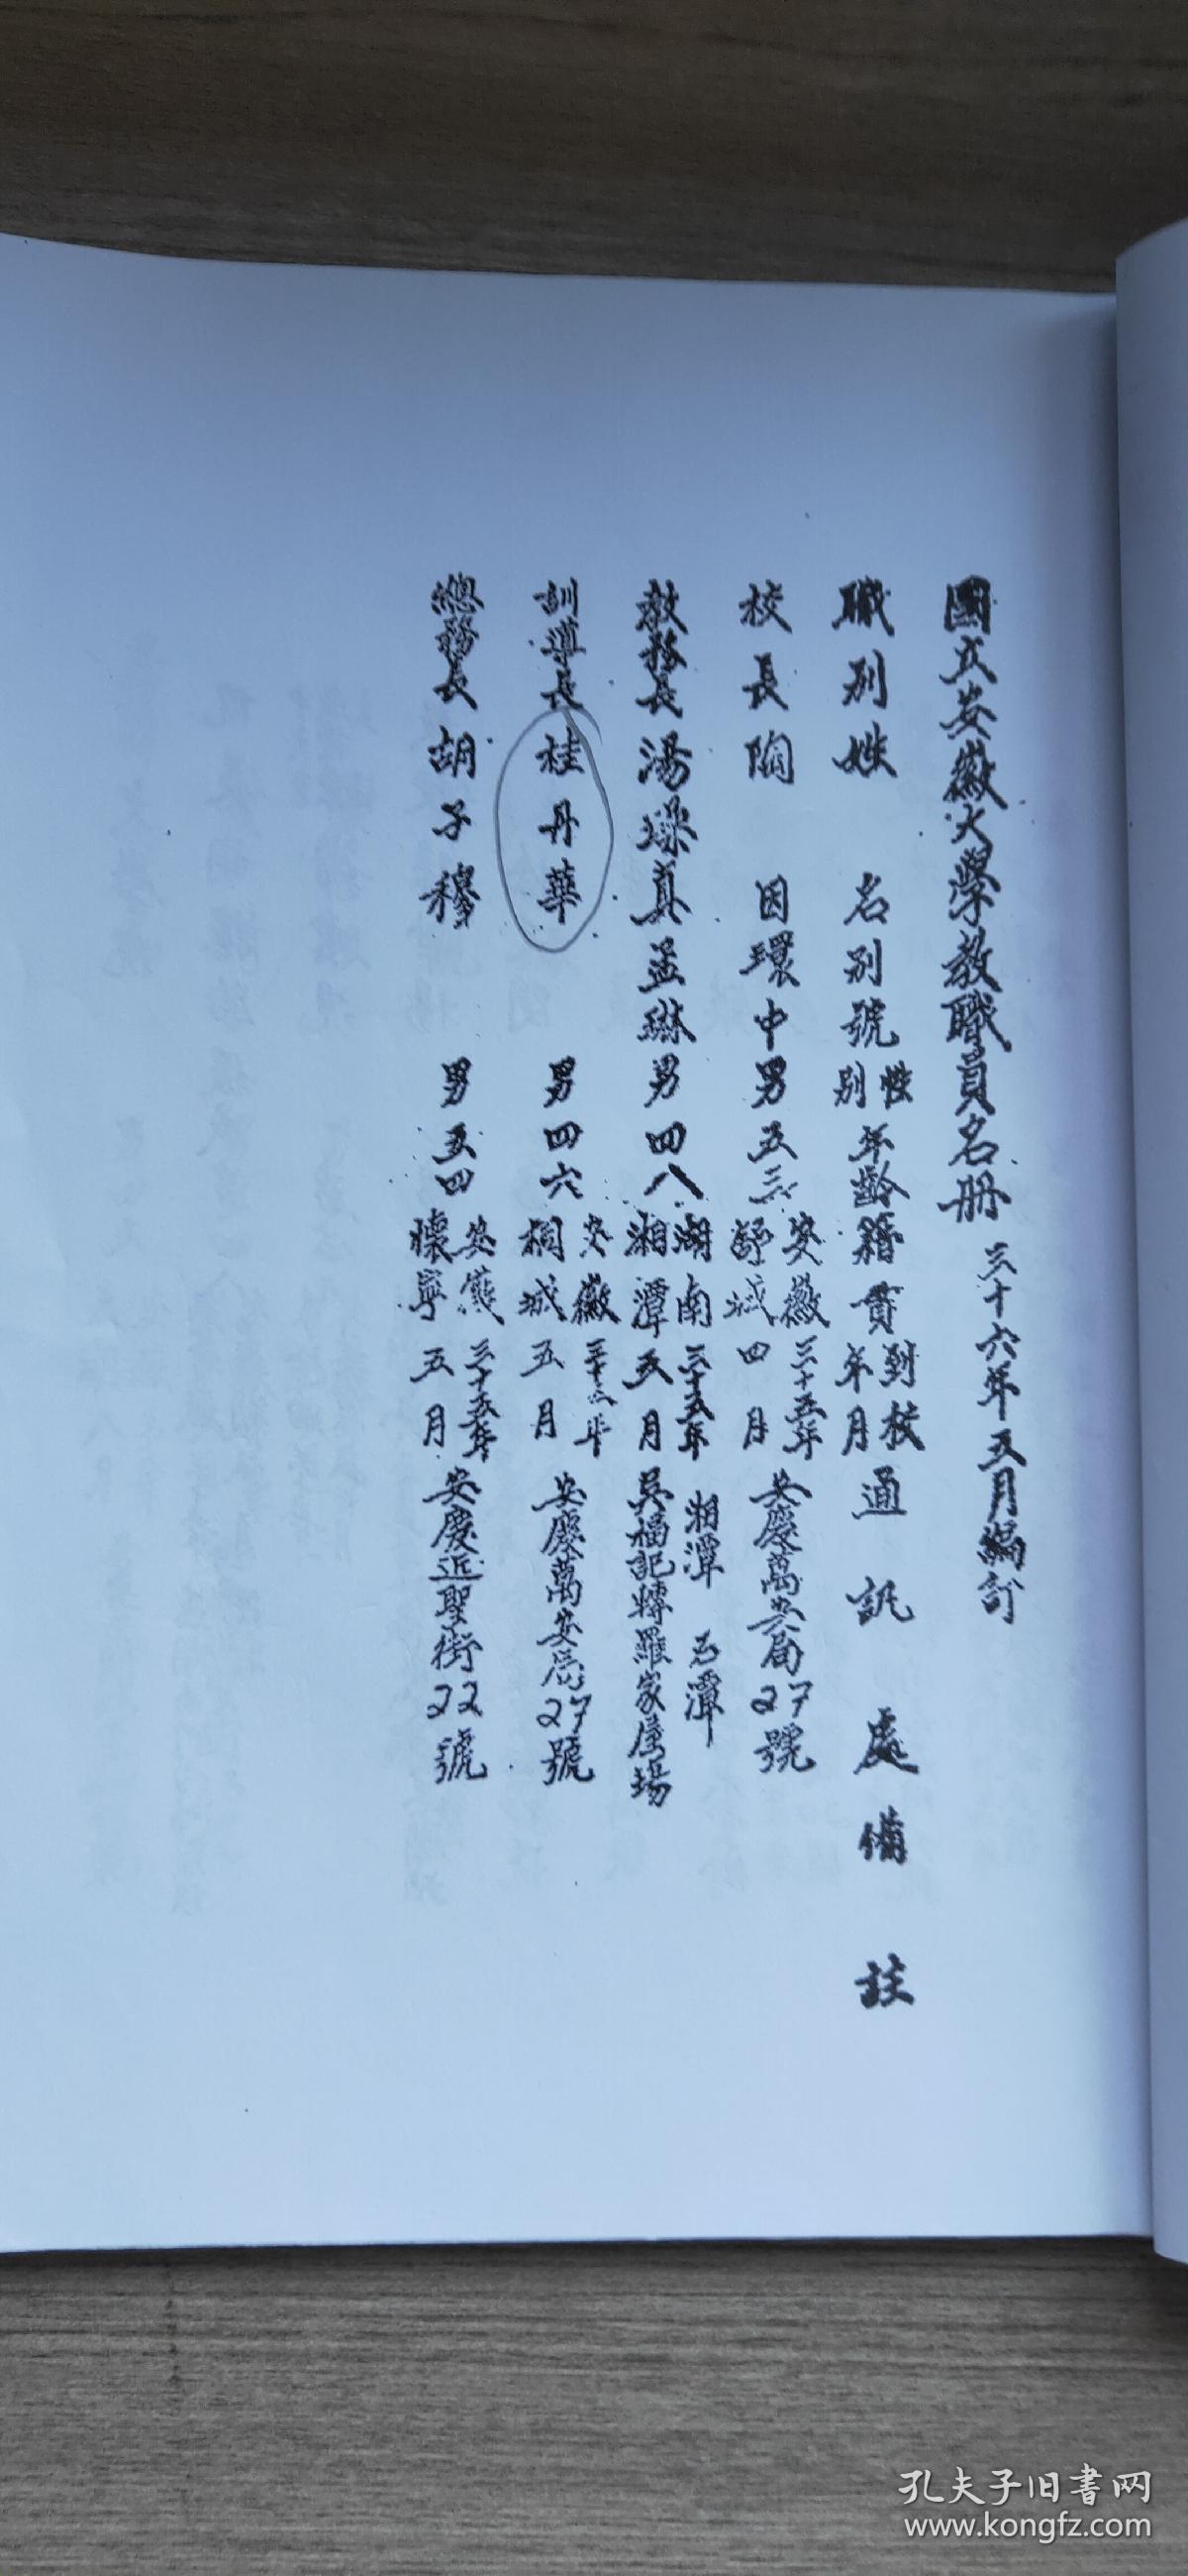 國立安徽大學教職員名册 三十六年五月編訂
職別 姓名 別號 性別 年齡 籍貫 到校年月 通訊處 備註
校長 陶因 環中 男 五三 安徽舒城 三十五年四月 安慶萬安局27號
教務長 湯璪真 孟琳 男 四八 湖南湘潭 三十五年五月 湘潭 石潭 吳福記轉羅家屋場
訓導長 桂丹華 男 四六 安徽桐城 三十六年五月 安慶萬安局27號
總務長 胡子穆 男 五四 安徽懷寧 三十五年五月 安慶近聖街22號
孔夫子旧書网
www.kongfz.com